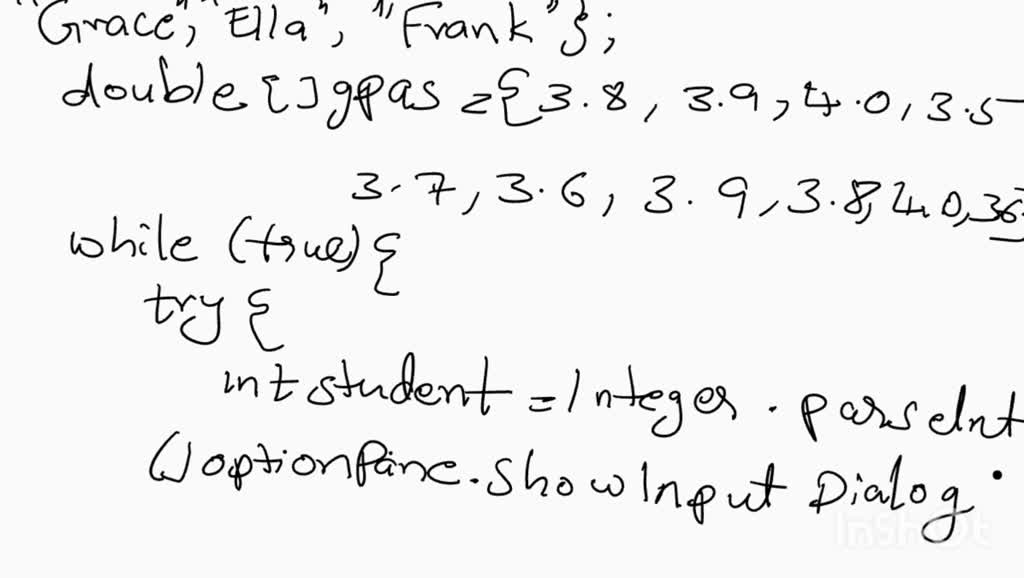 "Grace", "Ella", "Frank"};
double []gpas ={3.8, 3.9, 4.0, 3.5
3.7, 3.6, 3.9, 3.8, 4.0, 3.6}
while (true) {
try {
int student = Integer.parseInt
(JoptionPane.showInput Dialog
InShot